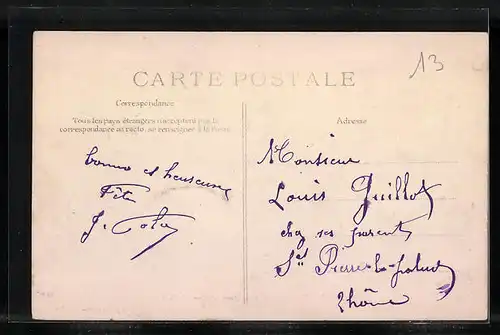 13
CARTE POSTALE
Correspondance
Tous les pays étrangers n'acceptent pas la
correspondance au recto, se renseigner à la Poste
Adresse
bonne et heureuse
Fête
J.
Monsieur
Louis Guillot
chez ses parents
St Pierre-la-palud
Rhône